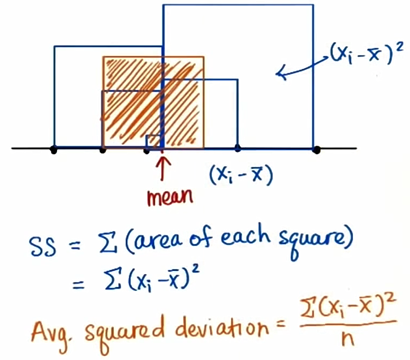 (xᵢ-x̄)²
(xᵢ-x̄)
mean
SS = Σ(area of each square)
= Σ(xᵢ-x̄)²
Avg. squared deviation = Σ(xᵢ-x̄)² / n